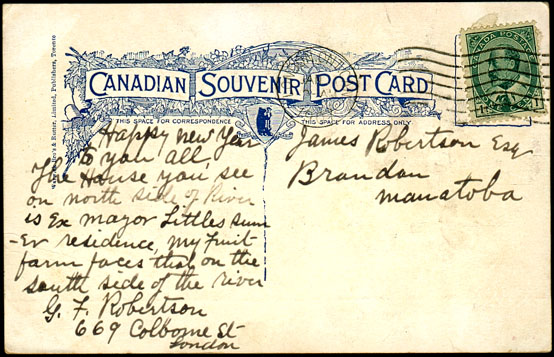 CANADIAN SOUVENIR POST CARD
THIS SPACE FOR CORRESPONDENCE
THIS SPACE FOR ADDRESS ONLY
Limited, Publishers, Toronto
CANADA POSTAGE
Happy New Year
to you all,
The House you see
on north side of River
is Ex Mayor Littles Sum
-er residence, my Fruit
farm faces that on the
south side of the river
G. F. Robertson
669 Colborne St
London
James Robertson Esq
Brandon
manatoba